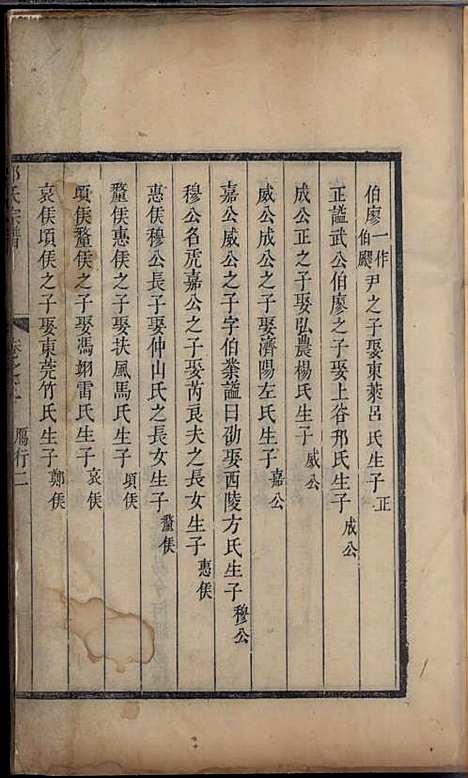 伯廖一作伯飂尹之子娶東萊呂氏生子正
正謚武公伯廖之子娶上谷邢氏生子成公
成公正之子娶弘農楊氏生子威公
威公成公之子娶濟陽左氏生子嘉公
嘉公威公之子字伯業謚曰劭娶西陵方氏生子穆公
穆公名虎嘉公之子娶芮良夫之長女生子惠侯
惠侯穆公長子娶仲山氏之長女生子釐侯
釐侯惠侯之子娶扶風馬氏生子頃侯
頃侯釐侯之子娶馮翊雷氏生子哀侯
哀侯頃侯之子娶東莞竹氏生子鄭侯
氏宗譜 卷之 鴈行二